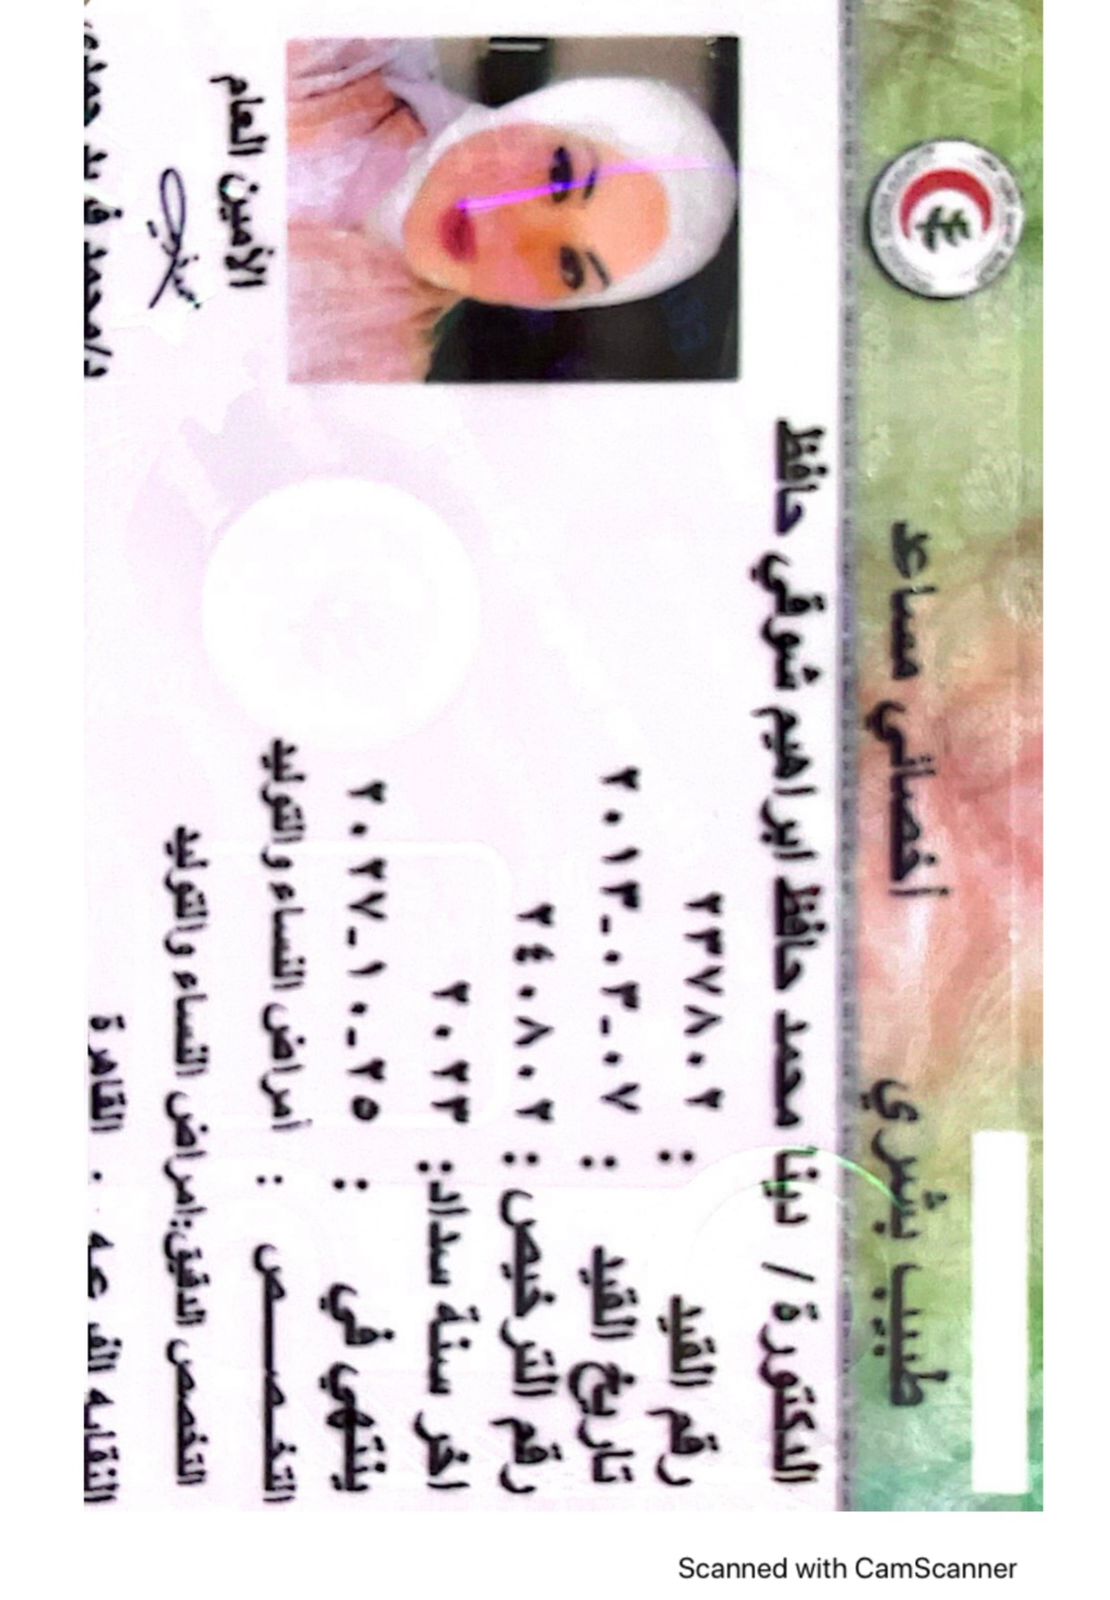 طبيب بشري    أخصائي مساعد
الدكتورة / دينا محمد حافظ ابراهيم شوقي حافظ
رقم القيد : ٢٣٧٨٠٢
تاريخ القيد : ٢٠١٣-٠٣-٠٧
رقم الترخيص : ٢٤٠٨٠٢
اخر سنة سداد: ٢٠٢٣
ينتهي في : ٢٠٢٧-١٠-٢٥
التخـصـــــص : أمراض النساء والتوليد
التخصص الدقيق:امراض النساء والتوليد
النقابه الفرعيه . القاهرة
الأمين العام
د/محمد فريد حمدي
Scanned with CamScanner